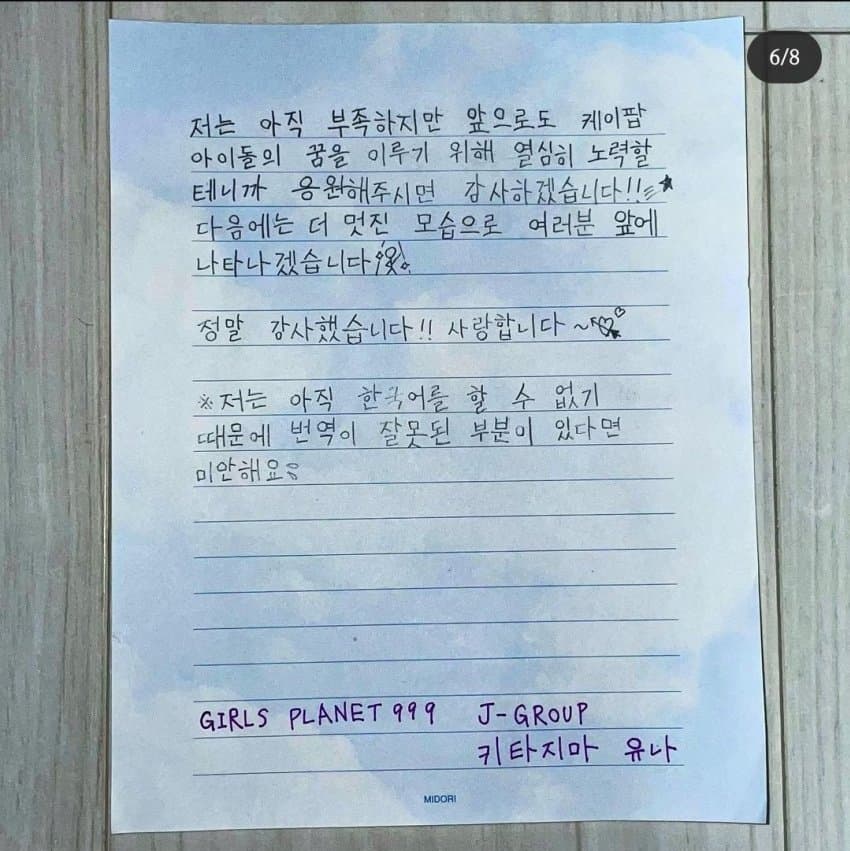 6/8
저는 아직 부족하지만 앞으로도 케이팝
아이돌의 꿈을 이루기 위해 열심히 노력할
테니까 응원해주시면 감사하겠습니다!!
다음에는 더 멋진 모습으로 여러분 앞에
나타나겠습니다
정말 감사했습니다!! 사랑합니다~
※저는 아직 한국어를 할 수 없기
때문에 번역이 잘못된 부분이 있다면
미안해요
GIRLS PLANET 999 J-GROUP
키타지마 유나
MIDORI